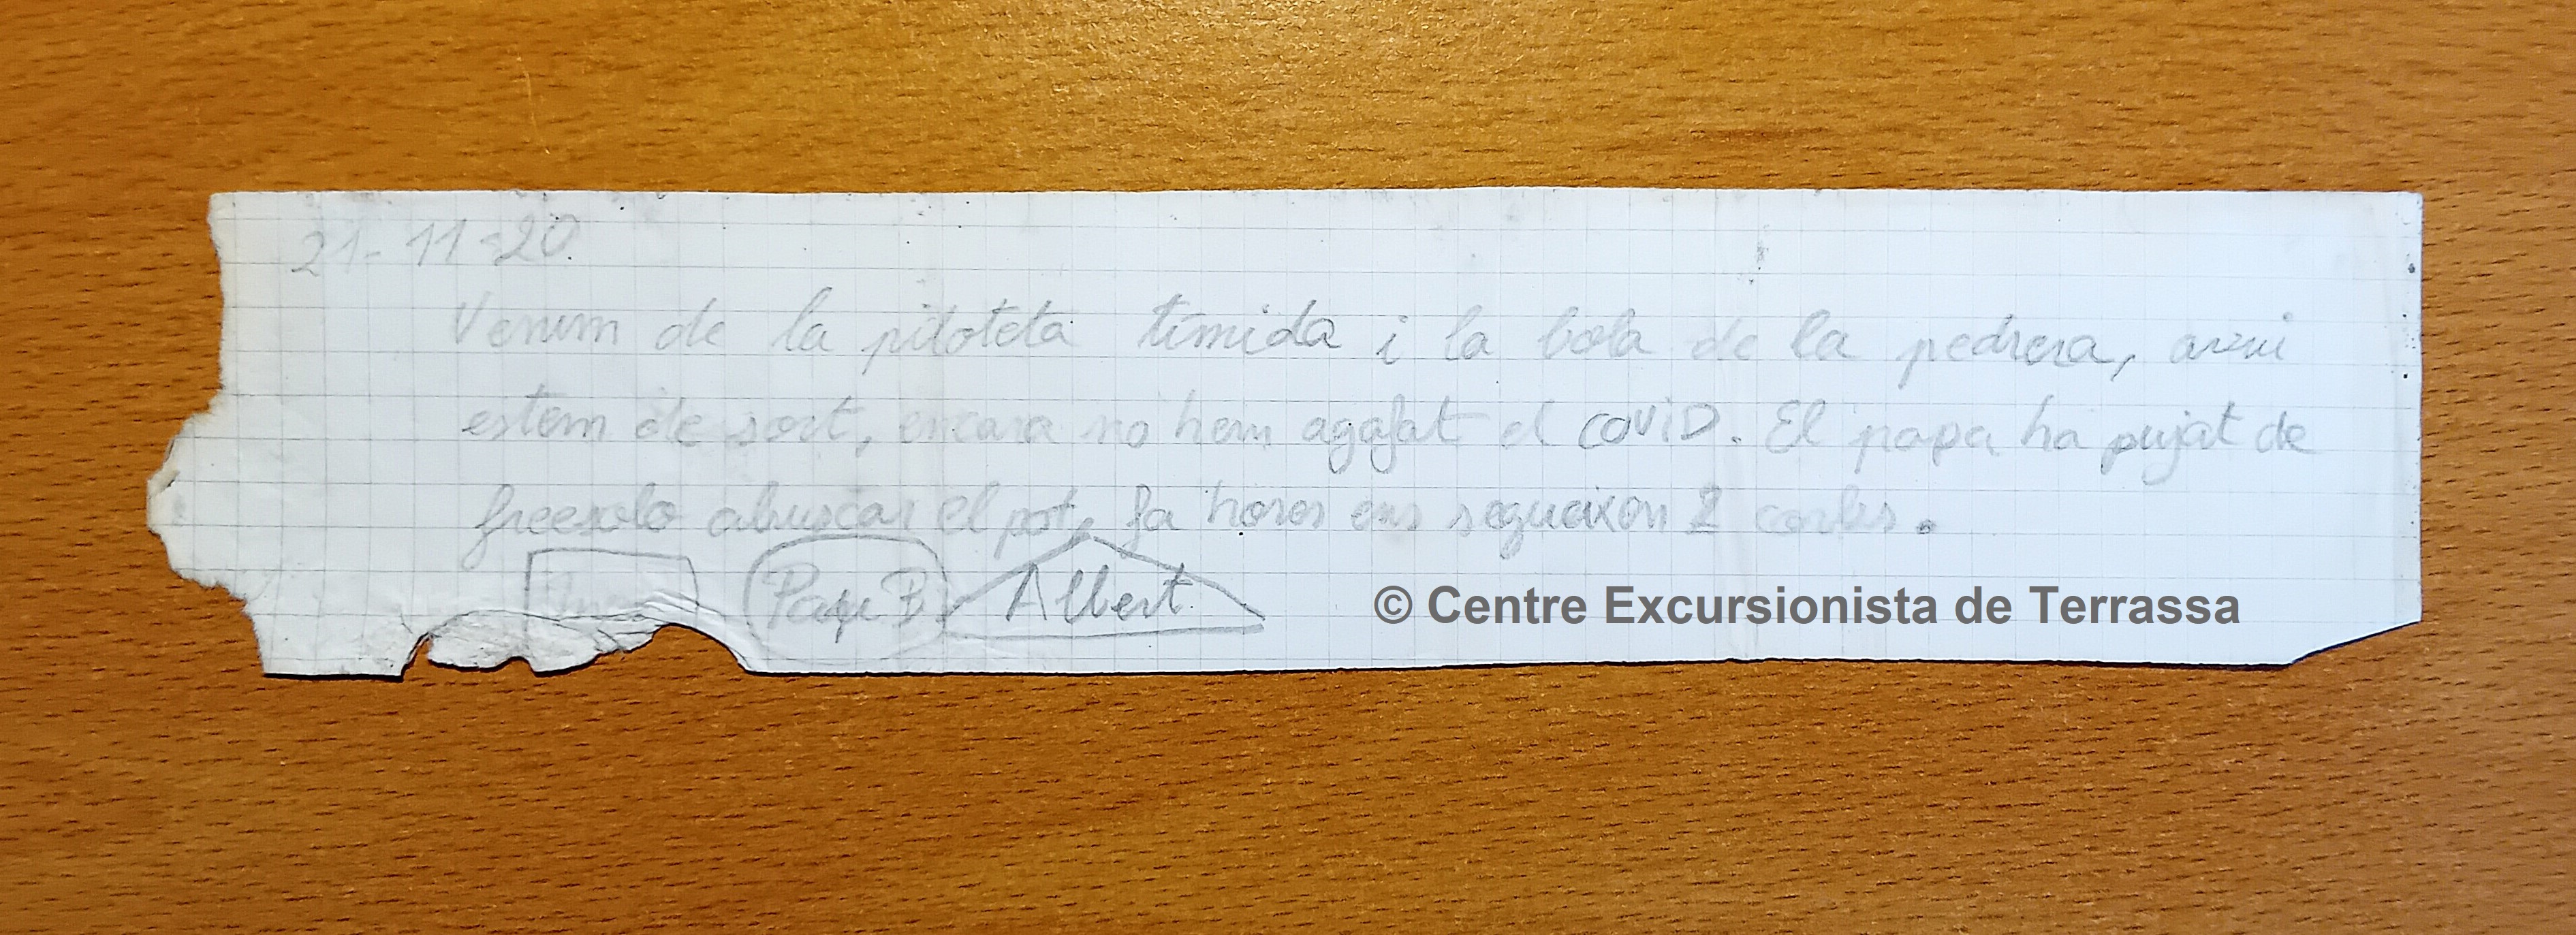 21-11-20.
Venim de la piloteta tímida i la bola de la pedrera, avui
estem de sort, encara no hem agafat el COVID. El papa ha pujat de
freesolo abuscar el pot, fa hores ens segueixen 2 corbs.
Papi B. Albert
© Centre Excursionista de Terrassa